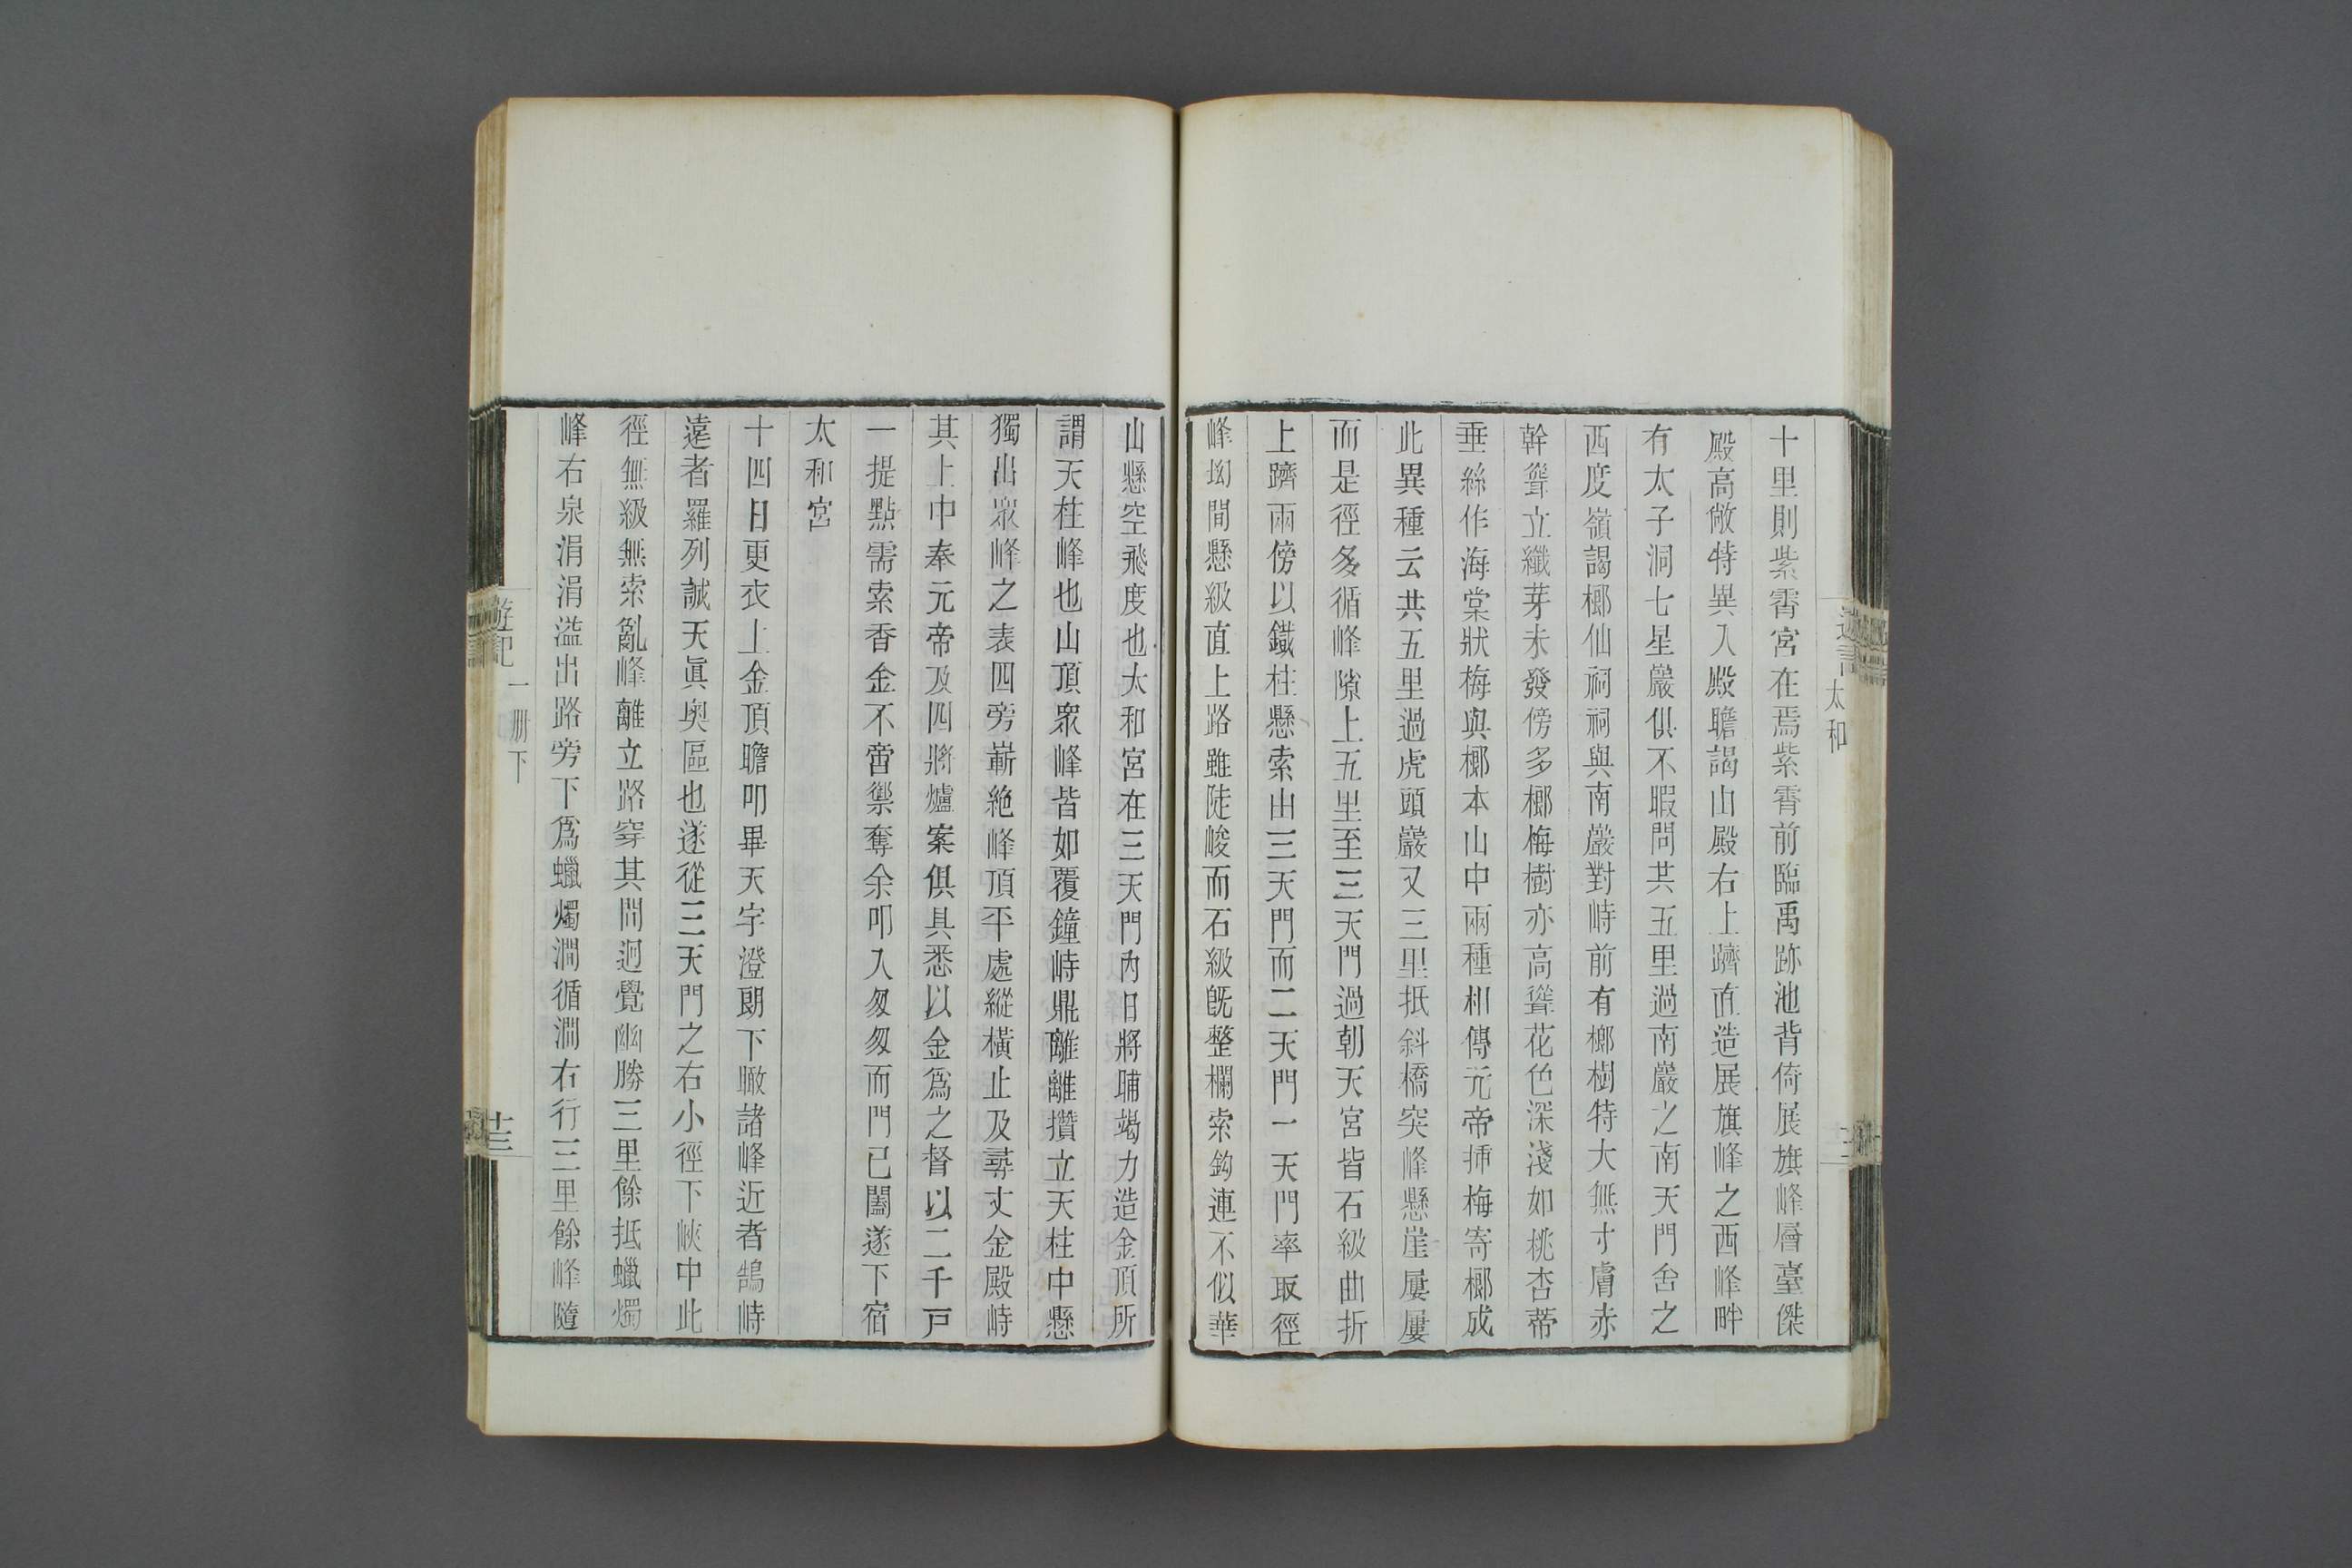 太和
十里則紫霄宮在焉紫霄前臨禹跡池背倚展旗峰層臺傑
殿高敞特異入殿瞻謁山殿右上躋直造展旗峰之西峰畔
有太子洞七星巖俱不暇問共五里過南巖之南天門舍之
西度嶺謁榔仙祠祠與南巖對峙前有榔樹特大無寸膚赤
幹聳立纖芽未發傍多榔梅樹亦高聳花色深淺如桃杏蒂
垂絲作海棠狀梅與榔本山中兩種相傳元帝插梅寄榔成
此異種云共五里過虎頭巖又三里抵斜橋突峰懸崖屢屢
而是徑多循峰隙上五里至三天門過朝天宮皆石級曲折
上躋兩傍以鐵柱懸索由三天門而二天門一天門率取徑
峰坳間懸級直上路雖陡峻而石級旣整欄索鈎連不似華
山懸空飛度也太和宮在三天門內日將晡竭力造金頂所
謂天柱峰也山頂眾峰皆如覆鐘峙鼎離離攢立天柱中懸
獨出眾峰之表四旁嶄絶峰頂平處縱橫止及尋丈金殿峙
其上中奉元帝及四將爐案俱具悉以金爲之督以二千戸
一提點需索香金不啻禦奪余叩入匆匆而門已闔遂下宿
太和宮
十四日更衣上金頂瞻叩畢天宇澄朗下瞰諸峰近者鵠峙
遠者羅列誠天眞奥區也遂從三天門之右小徑下峽中此
徑無級無索亂峰離立路穿其間迥覺幽勝三里餘抵蠟燭
峰右泉涓涓溢出路旁下爲蠟燭澗循澗右行三里餘峰隨
遊記
一册下
十三